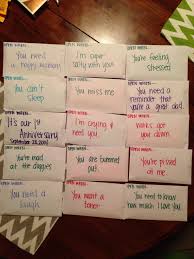 OPEN WHEN...
You need
a happy memory
OPEN WHEN...
I'm super
salty with you!
OPEN WHEN...
You're feeling
stressed
OPEN WHEN...
You can't
sleep
OPEN WHEN...
You miss me
OPEN WHEN...
You need a
reminder that
you're a great dad
OPEN WHEN...
It's our 1st
Anniversary
September 28, 2015
OPEN WHEN...
I'm saying I
need you
OPEN WHEN...
got you
down
OPEN WHEN...
You're mad
at the doggies
OPEN WHEN...
You are bummed
out
OPEN WHEN...
You're pissed
at me
OPEN WHEN...
You need a
laugh
OPEN WHEN...
You want a
OPEN WHEN...
You need to know
how much I love you